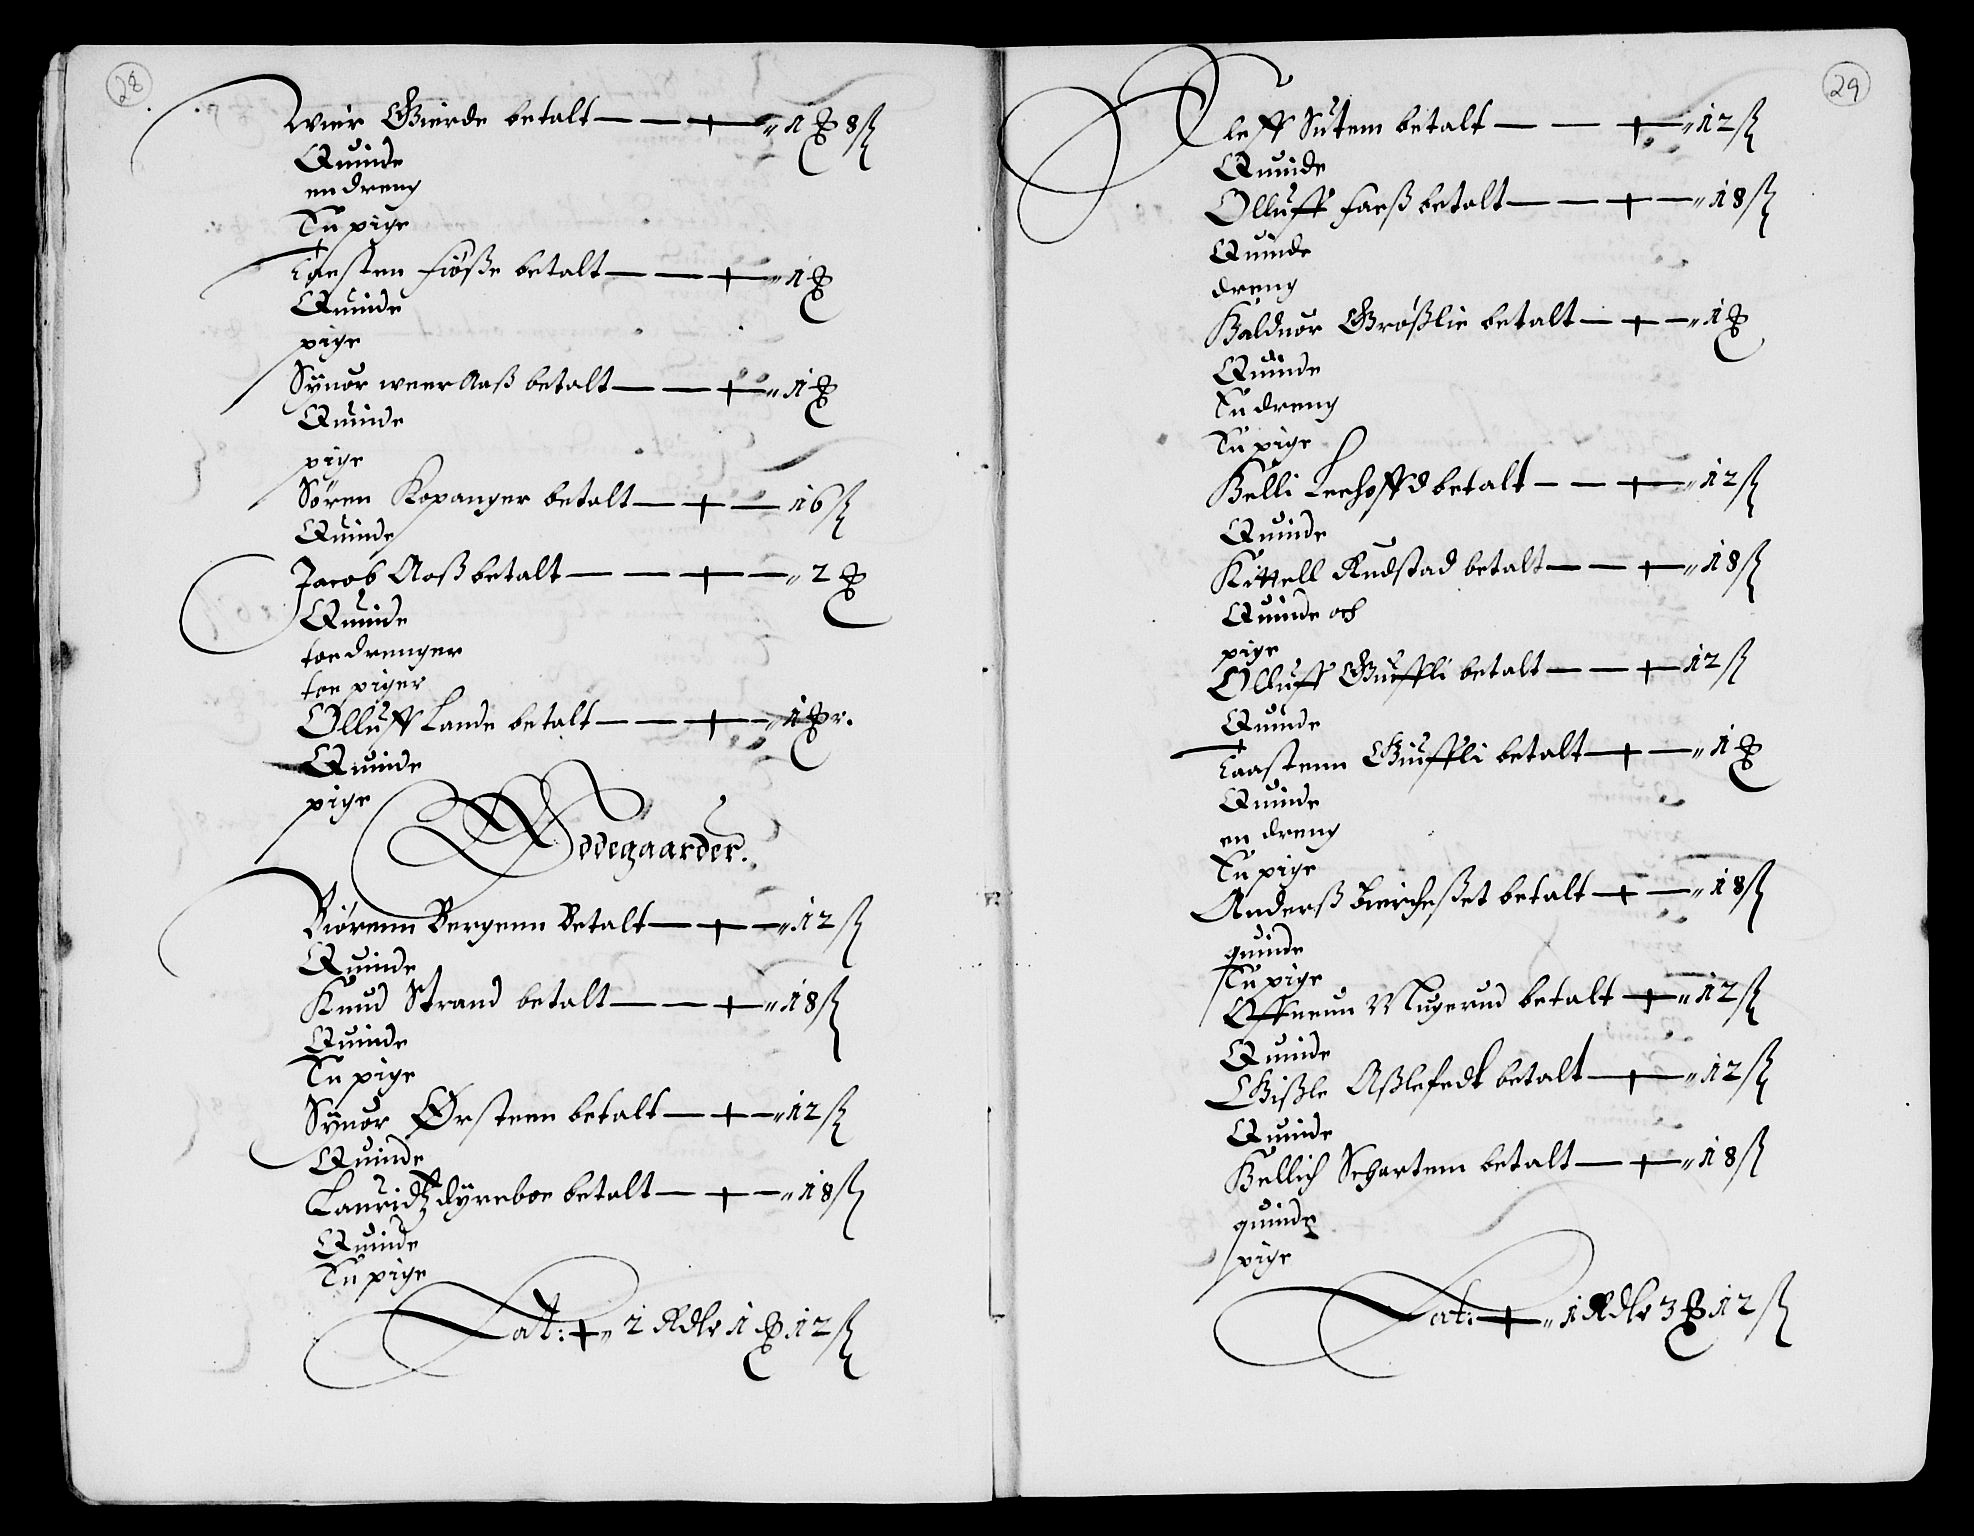 28
Wier Gierde betalt — — + „ 1 ₰ 8 ß
Quinde
en dreng
Tu pige
Taesten Fiøße betalt — — + „ 1 ₰
Quinde
pige
Synor weer Aaß betalt — — + „ 1 ₰
Quinde
pige
Søren Kopanger betalt — + — 16 ß
Quinde
Jacob Aaß betalt — — + — „ 2 ₰
Quinde
toe drenger
toe piger
Olluff Lande betalt — — + — „ 1 ₰r.
Quinde
pige
Ødegaarder.
Biørenn Bergenn Betalt — + — „ 12 ß
Quinde
Knud Strand betalt — — + „ 18 ß
Quinde
Tu pige
Synor Ørsteen betalt — + — „ 12 ß
Quinde
Lauridtz dyreboe betalt — + — „ 18 ß
Quinde
Tu pige
Lat: + „ 2 Rdlr 1 ₰ 12 ß
29
Leff Sutem betalt — — + — „ 12 ß
Quinde
Olluff Faeß betalt — — + — „ 18 ß
Quinde
dreng
Halduor Grøßlie betalt — + — „ 1 ₰
Quinde
Tu dreng
Tu pige
Helli Leehoffd betalt — — + — „ 12 ß
Quinde
Kittell Rudstad betalt — — + — „ 18 ß
Quinde och
pige
Olluff Guffli betalt — — + — 12 ß
Quinde
Taastenn Guffli betalt — + — „ 1 ₰
Quinde
en dreng
Tu pige
Anderß betalt — + — „ 18 ß
quinde
Tu pige
Effuenn Mugerud betalt — + — „ 12 ß
Quinde
Gißle Aßlefedt betalt — + — „ 12 ß
Quinde
Hellich Schartem betalt — + — „ 18 ß
quinde
pige
Lat: + „ 1 Rdlr 3 ₰ 12 ß